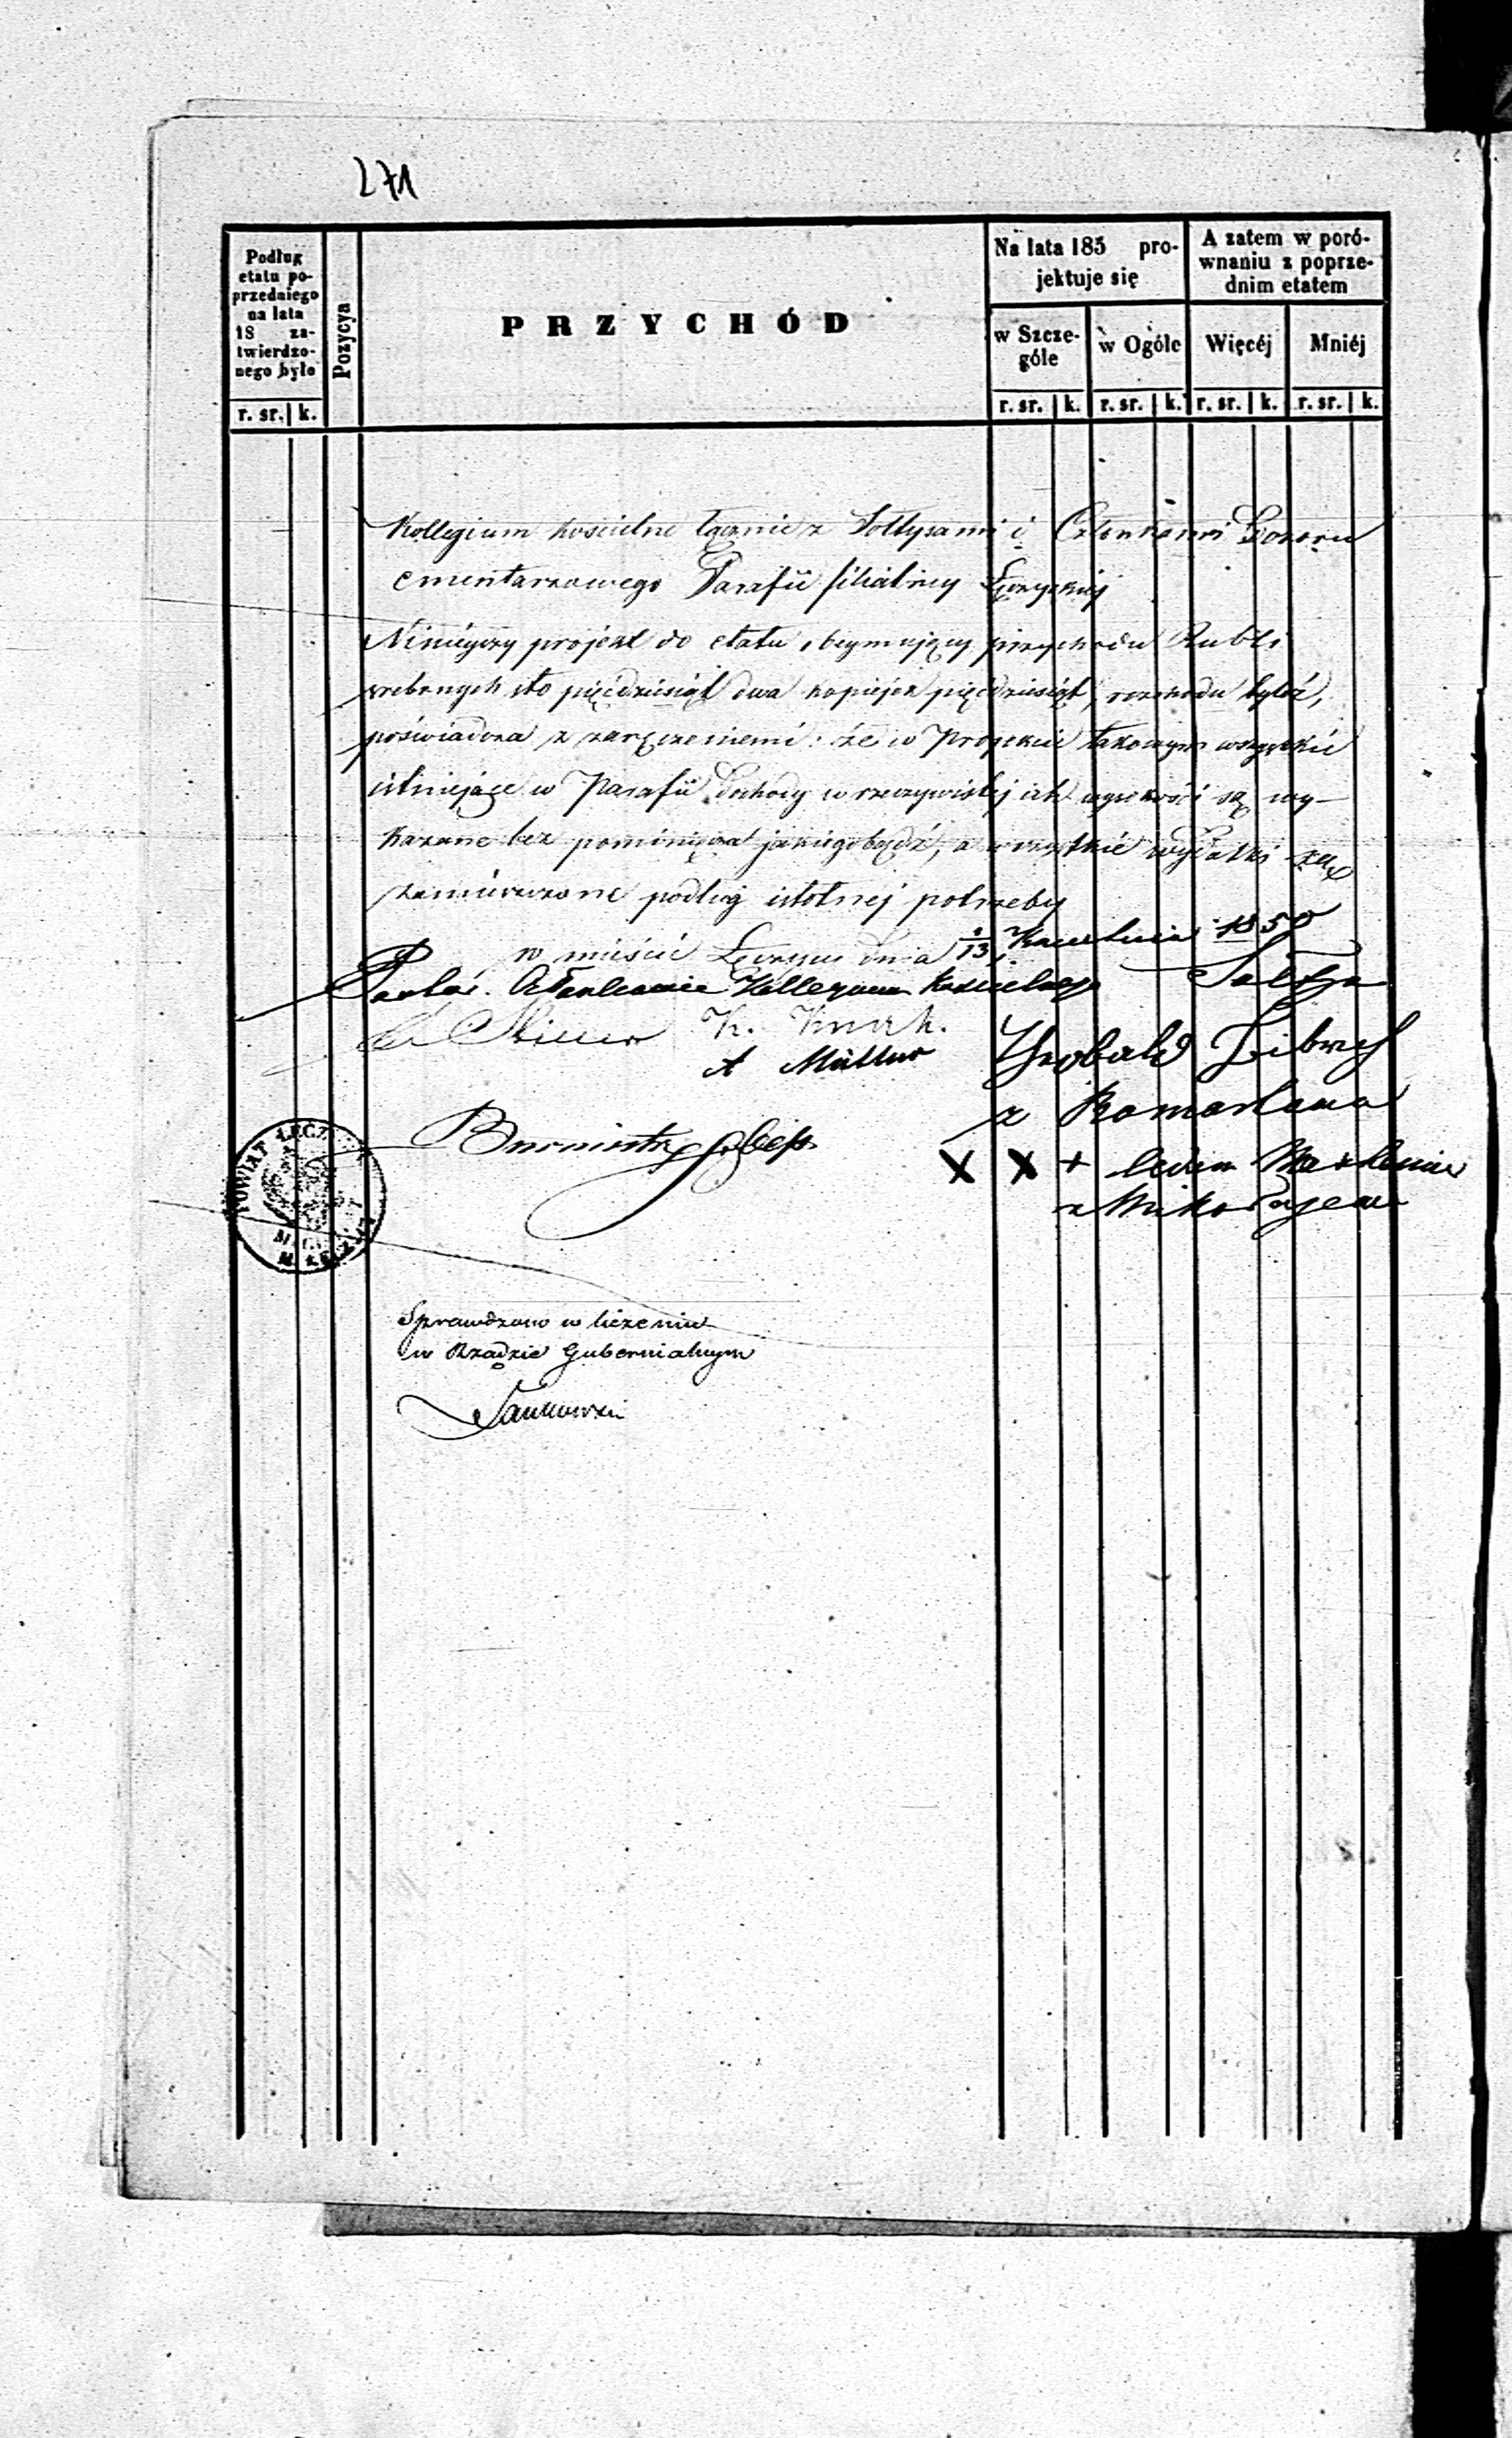 271
Podług
etatu po-
przedniego
na lata
18 za-
twierdzo-
nego było
Pozycya
PRZYCHÓD
Na lata 185 pro-
jektuje się
A zatem w poró-
wnaniu z poprze-
dnim etatem
w Szcze-
góle
w Ogóle
Więcéj
Mniéj
r. sr. k.
r. sr. k. r. sr. k. r. sr. k. r. sr. k.
Kollegium Kościelne łącznie z Sołtysami i Członkami Dozoru
Cmentarzowego Parafii filialnej Łęczyckiej
Niniejszy projekt do etatu obejmujący przychodu Rubli
srebrnych sto pięćdziesiąt dwa kopiejek pięćdziesiąt, rozchodu tyleż,
poświadcza z zaręczeniem: że w Projekcie takowym wszystkie
istniejące w Parafii Dochody w rzeczywistej ich wysokości są wy-
kazane bez pominięcia jakiegobądź, a wszystkie wydatki są
zamieszczone podług istotnej potrzeby
w mieście Łęczycy dnia 1/13 Kwietnia 1850
Pastor. Członkowie Kollegium Kościelnego Sołtysi
K. Knark.
A Müller Theobald
z
Burmistrz
X X +
z Mikołajewa
POWIAT ŁĘCZ
Sprawdzono w liczeniu
w Rządzie Gubernialnym